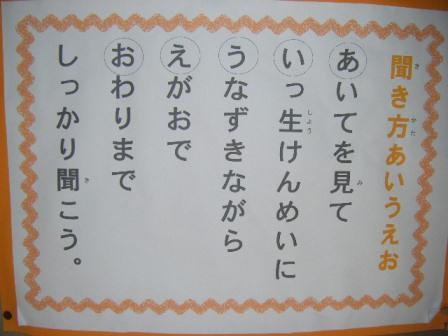 聞き方あいうえお
あいてを見て
いっ生けんめいに
うなずきながら
えがおで
おわりまで
しっかり聞こう。